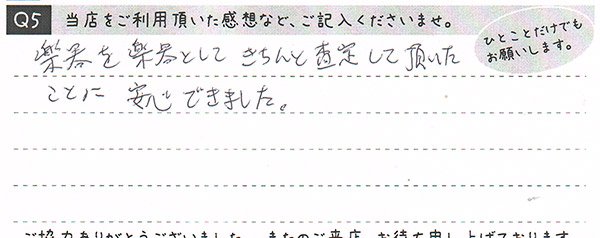 Q5 当店をご利用頂いた感想など、ご記入くださいませ。
ひとことだけでも
お願いします。
楽器を楽器として きちんと査定して頂いた
ことに 安心できました。
ご協力ありがとうございました。またのご来店、お待ち申し上げております。